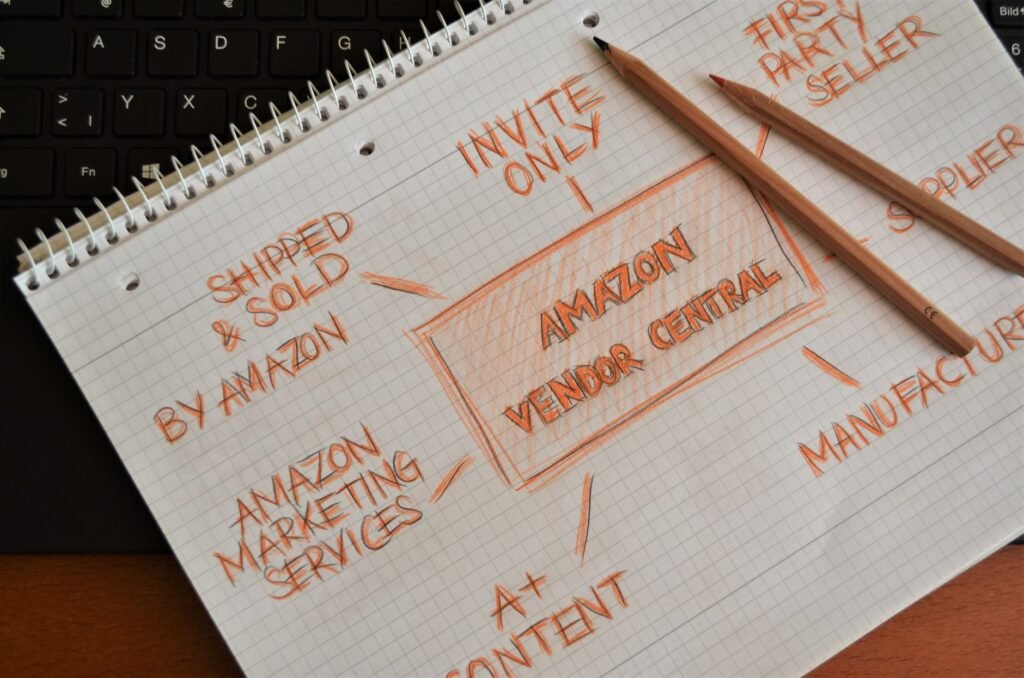 A S D F G H
> < | Y X C
Fn
Bild
6
INVITE
ONLY
FIRST
PARTY
SELLER
SHIPPED
& SOLD
BY AMAZON
SUPPLIER
AMAZON
VENDOR CENTRAL
MANUFACTURE
AMAZON
MARKETING
SERVICES
A+
CONTENT